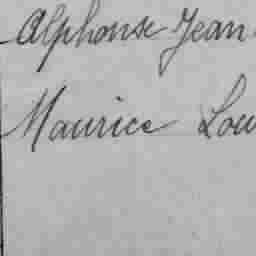 Alphonse Jean
Maurice Lou